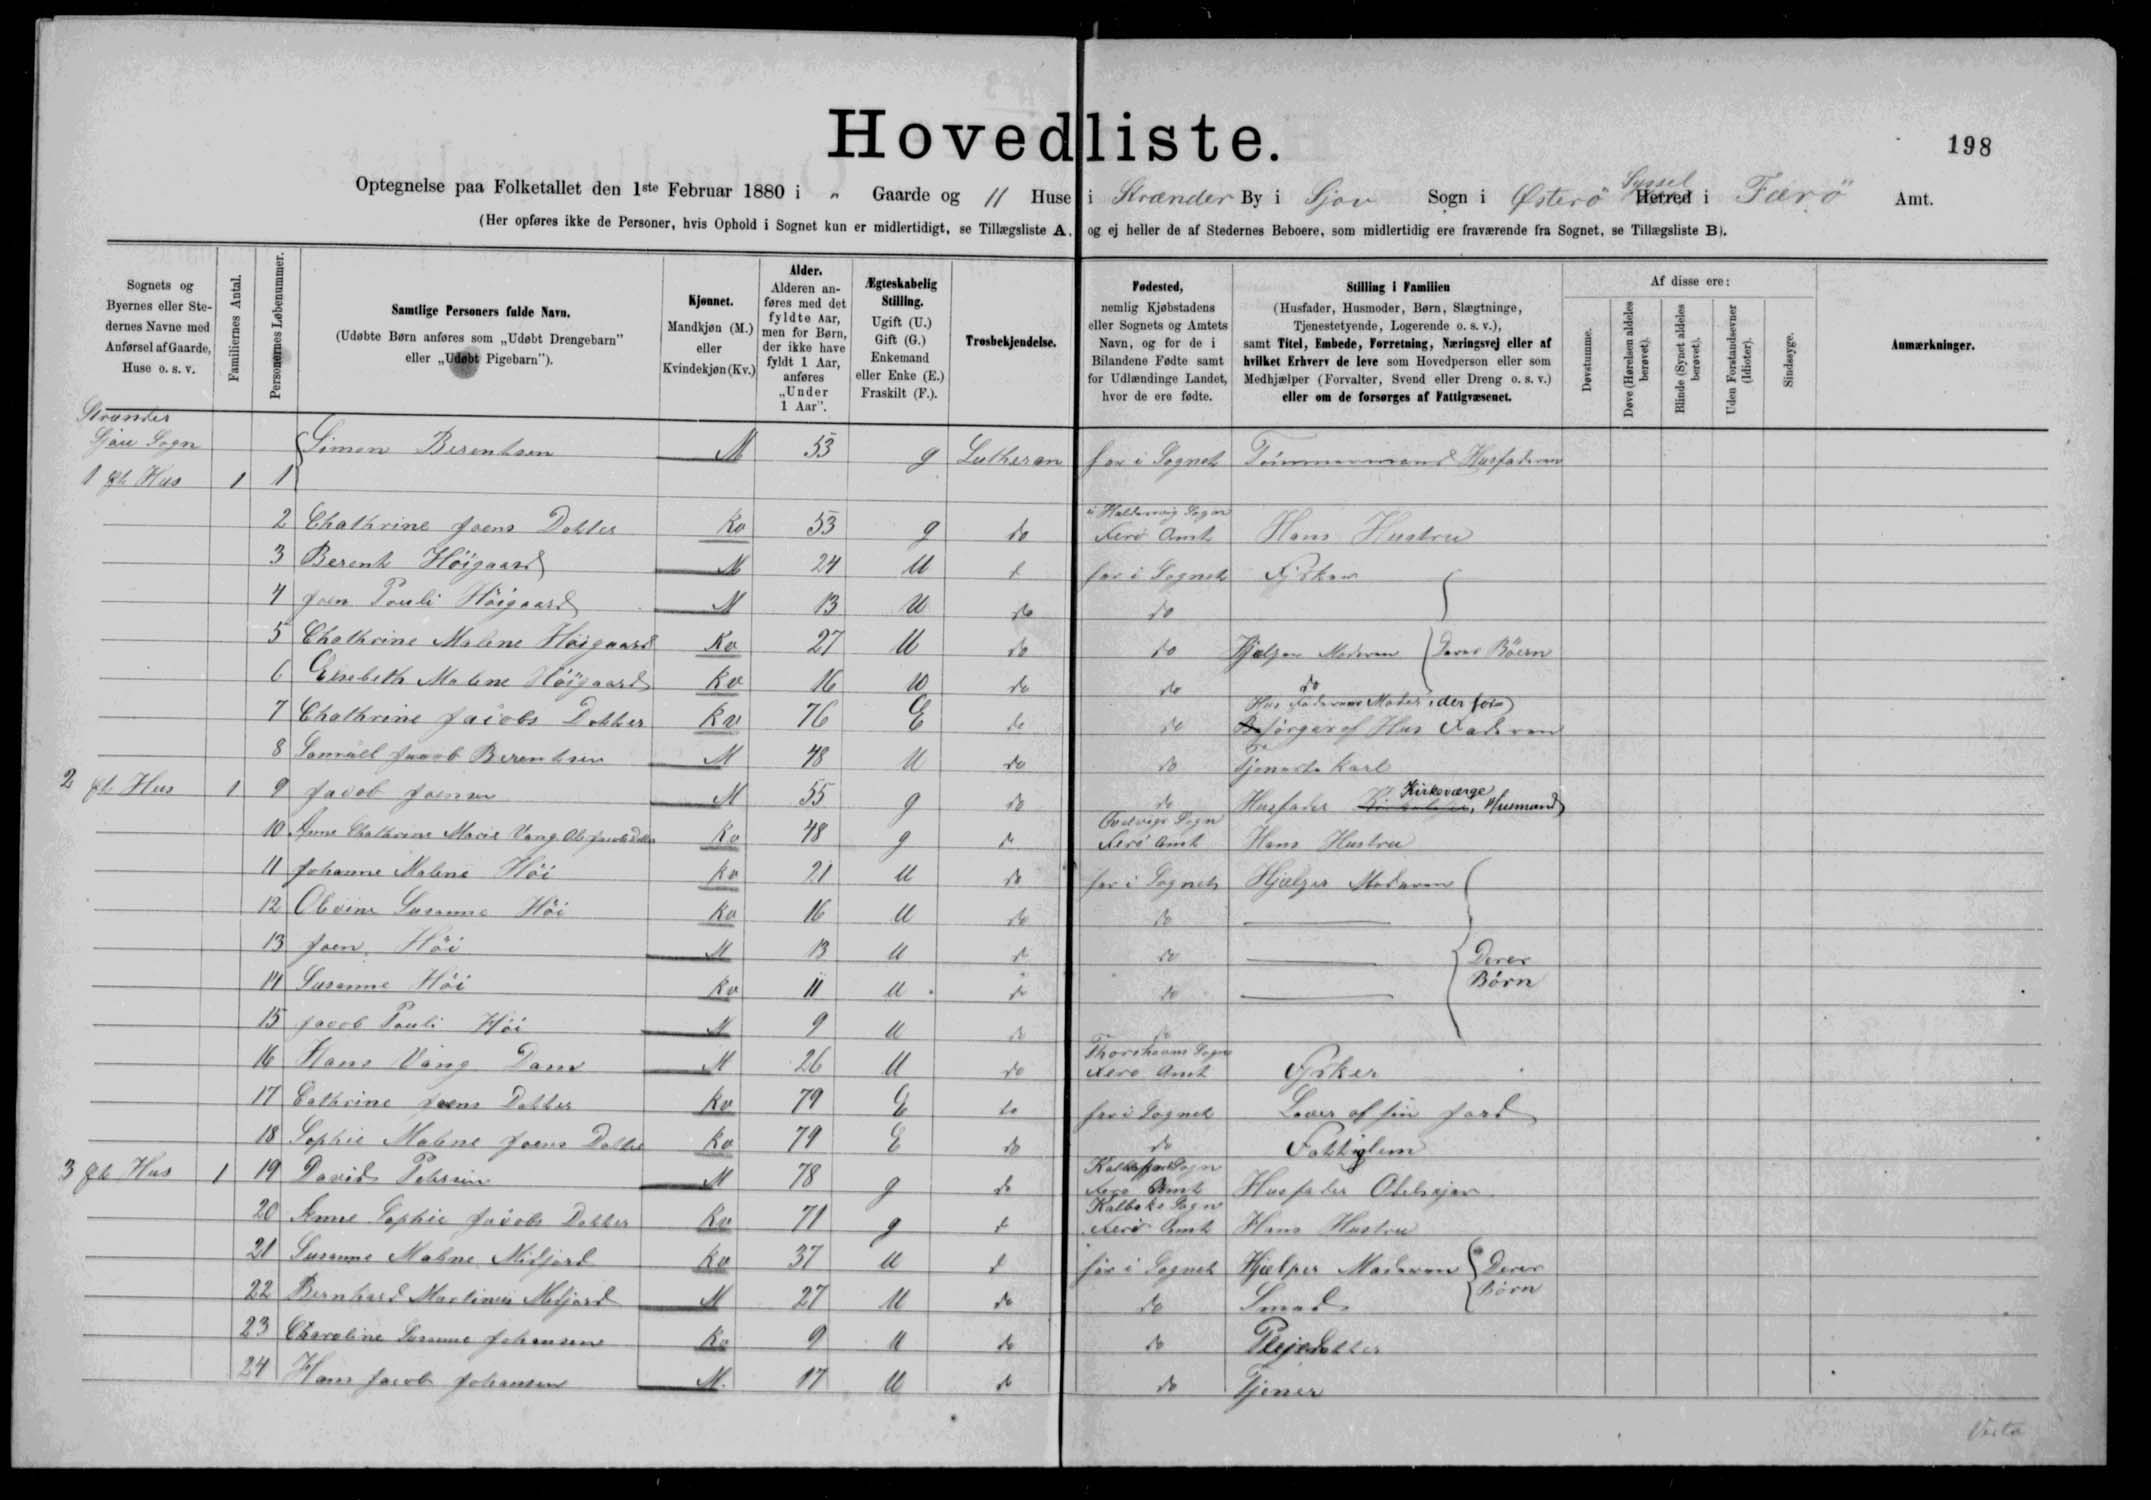 Hovedliste.
198
Optegnelse paa Folketallet den 1ste Februar 1880 i " Gaarde og 11 Huse i Strænder By i Sjov Sogn i Østerö Syssel Herred i Færö Amt.
(Her opføres ikke de Personer, hvis Ophold i Sognet kun er midlertidigt, se Tillægsliste A, og ej heller de af Stedernes Beboere, som midlertidig ere fraværende fra Sognet, se Tillægsliste B).
Sognets og Byernes eller Stedernes Navne med Anførsel af Gaarde, Huse o. s. v.
Familiernes Antal.
Personernes Løbenummer.
Samtlige Personers fulde Navn.
(Udøbte Børn anføres som „Udøbt Drengebarn" eller „Udøbt Pigebarn").
Kjønnet.
Mandkjøn (M.) eller Kvindekjøn (Kv.)
Alder.
Alderen anføres med det fyldte Aar, men for Børn, der ikke have fyldt 1 Aar, anføres „Under 1 Aar".
Ægteskabelig Stilling.
Ugift (U.) Gift (G.) Enkemand eller Enke (E.) Fraskilt (F.).
Trosbekjendelse.
Fødested,
nemlig Kjøbstadens eller Sognets og Amtets Navn, og for de i Bilandene Fødte samt for Udlændinge Landet, hvor de ere fødte.
Stilling i Familien
(Husfader, Husmoder, Børn, Slægtninge, Tjenestetyende, Logerende o. s. v.), samt Titel, Embede, Forretning, Næringsvej eller af hvilket Erhverv de leve som Hovedperson eller som Medhjælper (Forvalter, Svend eller Dreng o. s. v.) eller om de forsørges af Fattigvæsenet.
Af disse ere:
Døvstumme.
Døve (Hørelsen aldeles berøvet).
Blinde (Synet aldeles berøvet).
Uden Forstandsevner (Idioter).
Sindssyge.
Anmærkninger.
Strænder
Sjov Sogn
1 Hus 1 1 Simon Berentsen M 53 g Lutheran her i Sognet Tömmermand Husfaderen
2 Chathrine Joens Dotter Kv 53 g do i Haldervig Sogn Færö Amt Hans Hustru
3 Berent Höigaard M 24 U d her i Sognet Fisker
4 Joen Pouli Höigaard M 13 U do do
5 Chathrine Malene Höigaard Kv 27 U do do Hjælper Moderen Deres Böern
6 Elsebeth Malene Höigaard Kv 16 U do do do
7 Chathrine Jacobs Dotter Kv 76 E do do Hus Faderens Moder, der for sörges af Hus Faderen
8 Samuel Jacob Berentsen M 48 U do do Tjeneste Karl
2 Hus 1 9 Jacob Joensen M 55 g do do Husfader Kirkeværge, Husmand
10 Anne Chathrine Marie Vang Kv 48 g do Sogn Færö Amt Hans Hustru
11 Johanne Malene Höi Kv 21 U do her i Sognet Hjælper Moderen
12 Olevine Susanne Höi Kv 16 U do do
13 Joen Höi M 13 U d do Deres
14 Susanne Höi Kv 11 U d do Börn
15 Jacob Pouli Höi M 9 U do do
16 Hans Vang Dam M 26 U do Thorshavns Sogn Færö Amt Fisker
17 Cathrine Joens Dotter Kv 79 E do her i Sognet Lever af sin Jord
18 Sophie Malene Joens Dotter Kv 79 E do do Fattiglem
3 Hus 1 19 David Petersen M 78 g do Sogn Færö Amt Husfader Odelsejer
20 Anne Sophie Jacobs Dotter Kv 71 g d Kalbaks Sogn Færö Amt Hans Hustru
21 Susanne Malene Midjord Kv 37 U d her i Sognet Hjælper Moderen Deres
22 Bernhard Martinus Midjord M 27 U do do Smed Börn
23 Charoline Susanne Johansen Kv 9 U do do Plejedotter
24 Hans Jacob Johansen M. 17 U do do Tjener
Verte